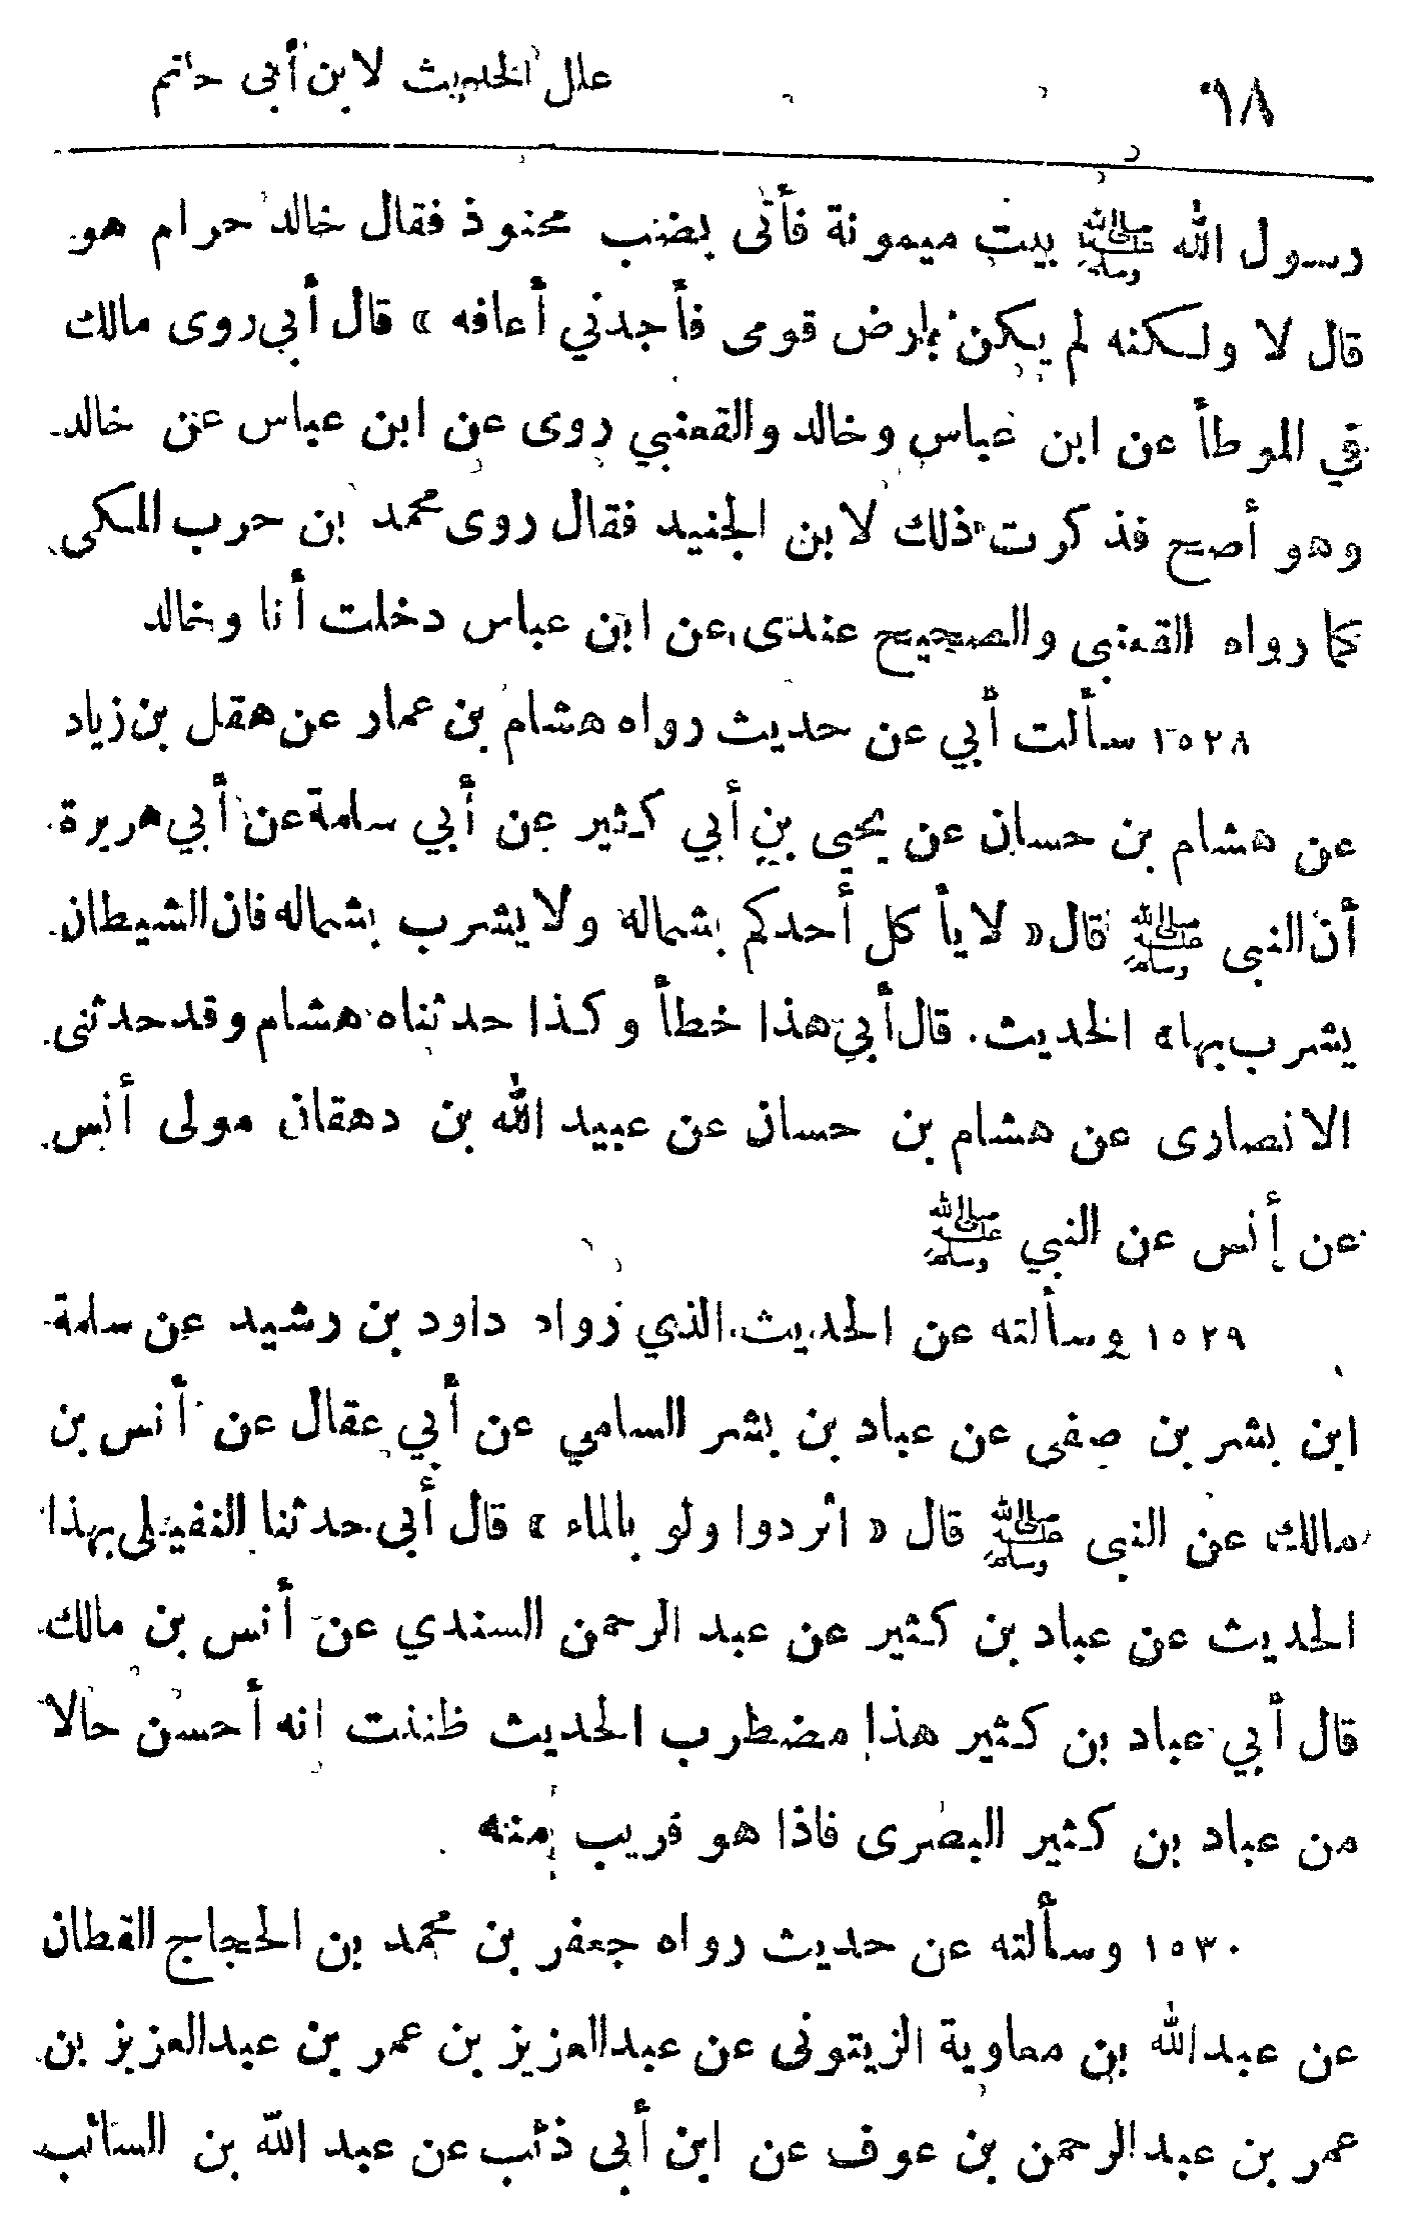 ١٨ علل الحديث لابن أبى حاتم
رسول الله ﷺ بيت ميمونة فأتى بضب محنوذ فقال خالد حرام هو
قال لا ولكنه لم يكن بأرض قومى فأجدني أعافه » قال أبي روى مالك
في الموطأ عن ابن عباس وخالد والقعنبي روى عن ابن عباس عن خالد
وهو أصح فذكرت ذلك لابن الجنيد فقال روى محمد بن حرب المكى
كما رواه القعنبي والصحيح عندى عن ابن عباس دخلت أنا وخالد
١٥٢٨ سألت أبي عن حديث رواه هشام بن عمار عن هقل بن زياد
عن هشام بن حسان عن يحيى بن أبي كثير عن أبي سلمة عن أبي هريرة
أن النبى ﷺ قال « لا يأكل أحدكم بشماله ولا يشرب بشماله فان الشيطان
يشرب بهاه الحديث . قال أبي هذا خطأ وكذا حدثناه هشام وقد حدثنى
الانصارى عن هشام بن حسان عن عبيد الله بن دهقان مولى أنس
عن أنس عن النبي ﷺ
١٥٢٩ وسألته عن الحديث الذي رواه داود بن رشيد عن سلمة
ابن بشر بن صفى عن عباد بن بشر السامي عن أبي عقال عن أنس بن
مالك عن النبى ﷺ قال « اثردوا ولو بالماء » قال أبى حدثنا النفيلى بهذا
الحديث عن عباد بن كثير عن عبد الرحمن السندي عن أنس بن مالك
قال أبي عباد بن كثير هذا مضطرب الحديث ظننت انه أحسن حالا
من عباد بن كثير البصرى فاذا هو قريب منه
١٥٣٠ وسألته عن حديث رواه جعفر بن محمد بن الحجاج القطان
عن عبدالله بن معاوية الزيتونى عن عبدالعزيز بن عمر بن عبدالعزيز بن
عمر بن عبد الرحمن بن عوف عن ابن أبى ذئب عن عبد الله بن السائب